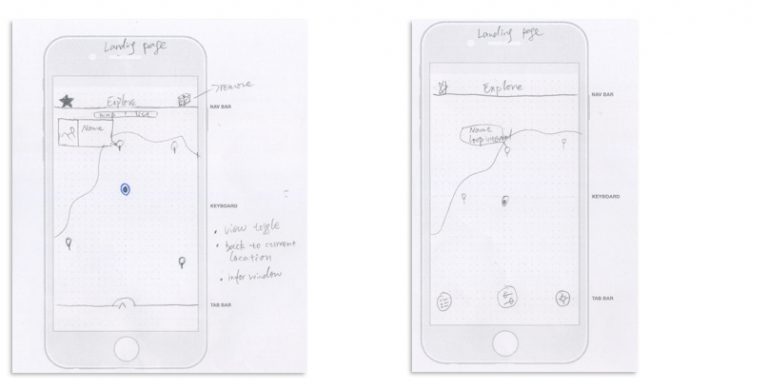 Landing page
→ remove
Explore
NAV BAR
map | list
Name
KEYBOARD
• view toggle
• back to current
location
• infor window
TAB BAR
Landing page
Explore
NAV BAR
Name
KEYBOARD
TAB BAR